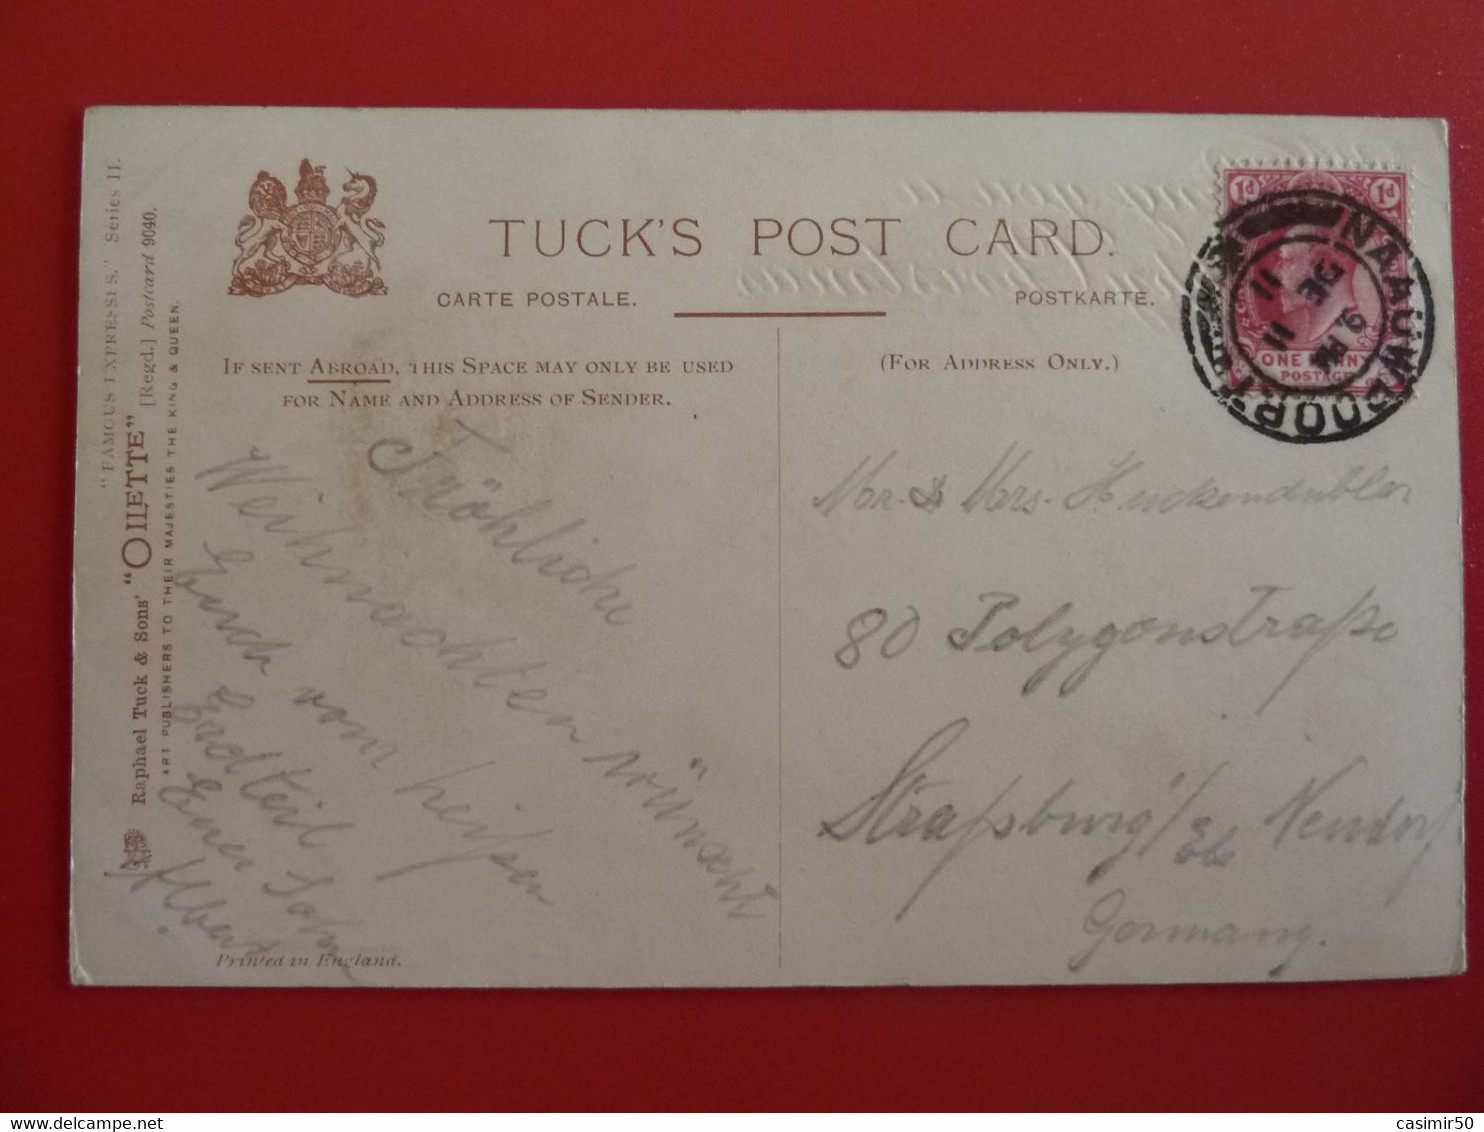 "FAMOUS EXPRESSES." Series II.
Raphael Tuck & Sons' "OILETTE" [Regd.] Postcard 9040.
ART PUBLISHERS TO THEIR MAJESTIES THE KING & QUEEN.
TUCK'S POST CARD.
CARTE POSTALE.
POSTKARTE.
IF SENT ABROAD, THIS SPACE MAY ONLY BE USED
FOR NAME AND ADDRESS OF SENDER.
(FOR ADDRESS ONLY.)
1d 1d
ONE PENNY
POSTAGE
NAAUWPOORT
DE
11
Fröhliche
Weihnachten wünscht
Euch vom heißen
Erdteil
Euer Sohn
Albert
Printed in England.
Mr & Mrs
80 Polygonstraße
Straßburg i/Els Neudorf
Germany.
casimir50